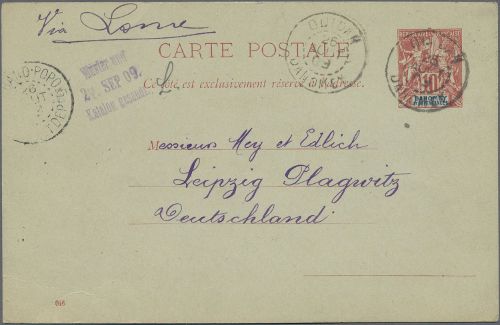 Via Lome
CARTE POSTALE
Ce côté est exclusivement réservé à l'adresse.
REPUBLIQUE FRANÇAISE
10
DAHOMEY
OUIDAH
DAHOMEY
OUIDAH
DAHOMEY
ND-POPO
Muster und
SEP 09.
Katalog gesandt
Messieurs Mey et Edlich
Leipzig Plagwitz
Deutschland